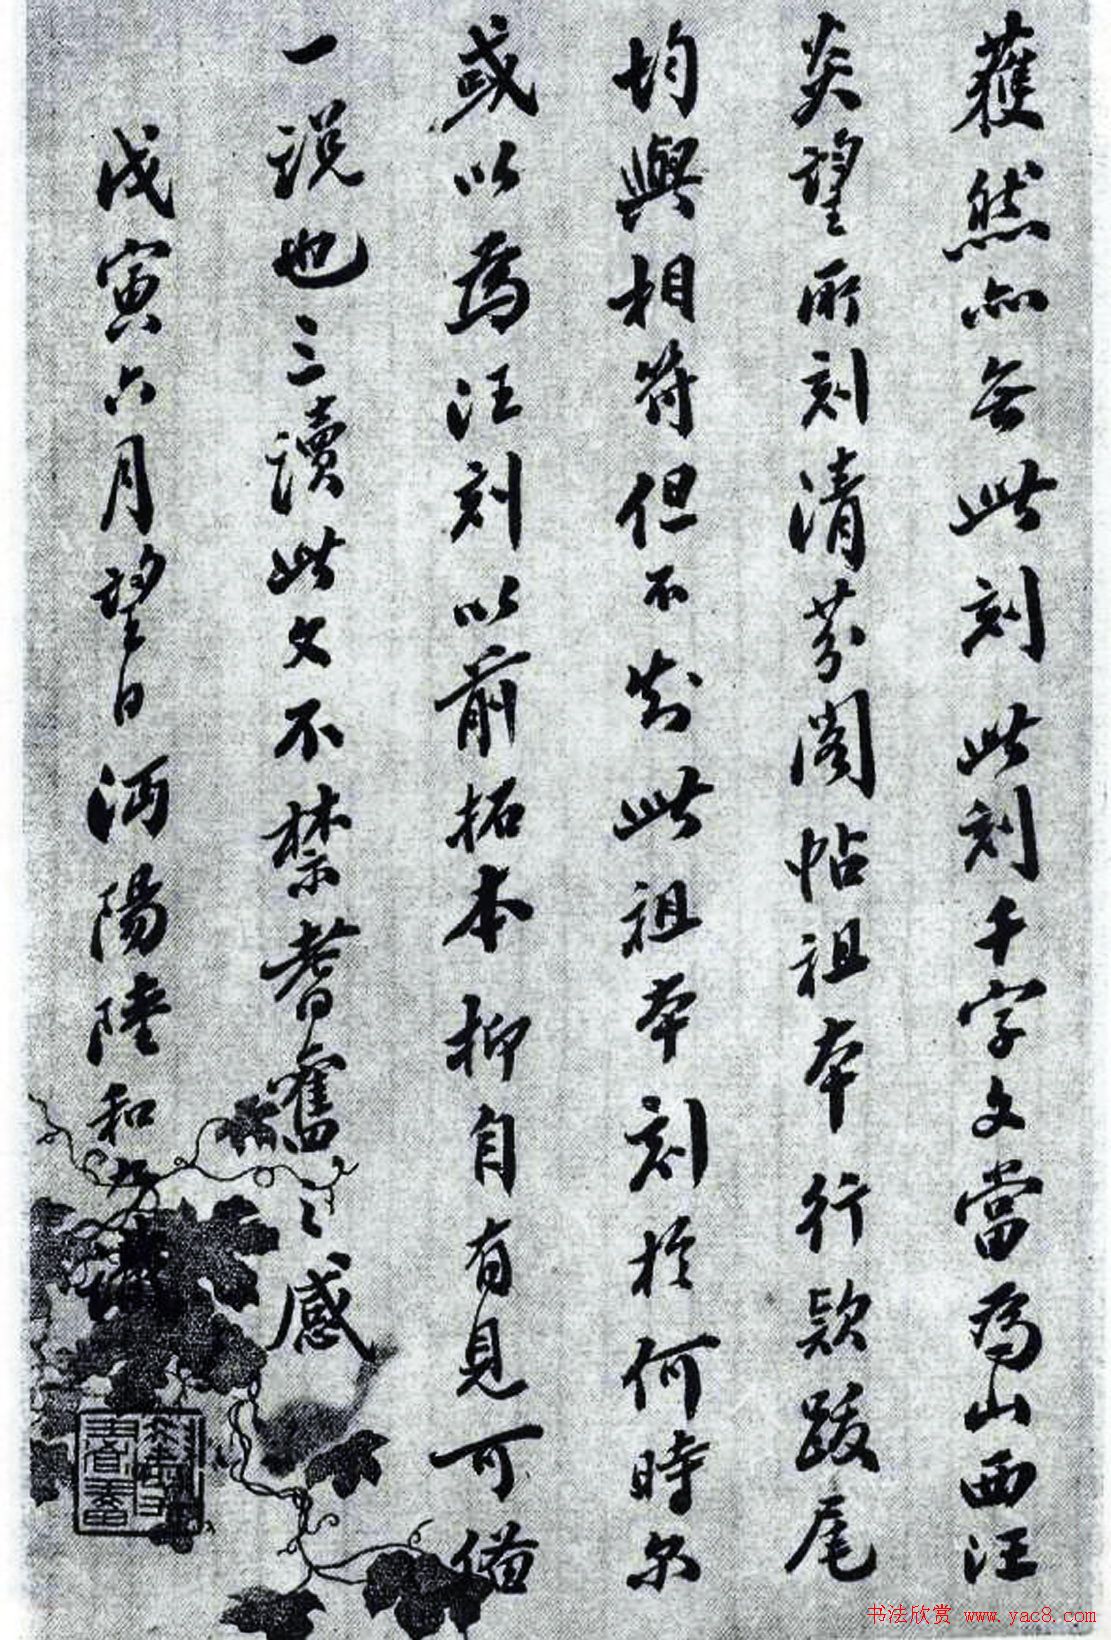 獲然亦無此刻此刻千字文當為山西汪
炎望所刻清芬閣帖祖本行款跋尾
均與相符但不知此祖本刻於何時尔
或以為汪刻以前拓本抑自有見可備
一说也三讀此文不禁耆舊之感
戊寅六月望日沔陽陸和九
书法欣赏 www.yac8.com